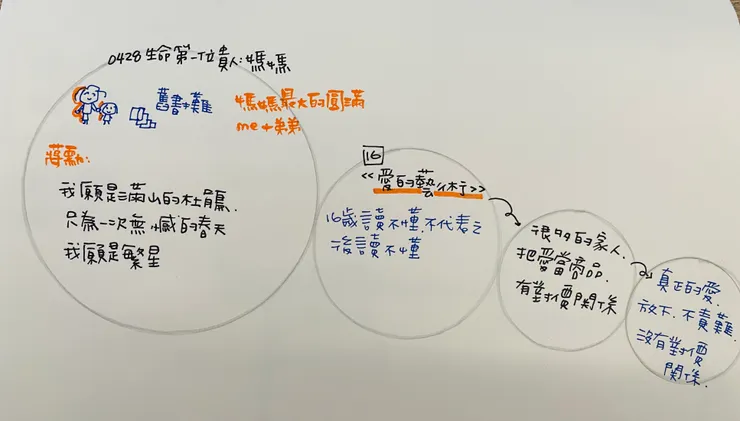 0428生命第一位貴人:媽媽
舊書攤
媽媽最大的圓滿
me+弟弟
蔣勳:
我願是滿山的杜鵑.
只為一次無憾的春天
我願是繁星
16
<<愛的藝術>>
16歲讀不懂.不代表之
後讀不懂
很多的家人.
把愛當商品.
有對價關係
真正的愛.
放下.不責難.
沒有對價
關係.